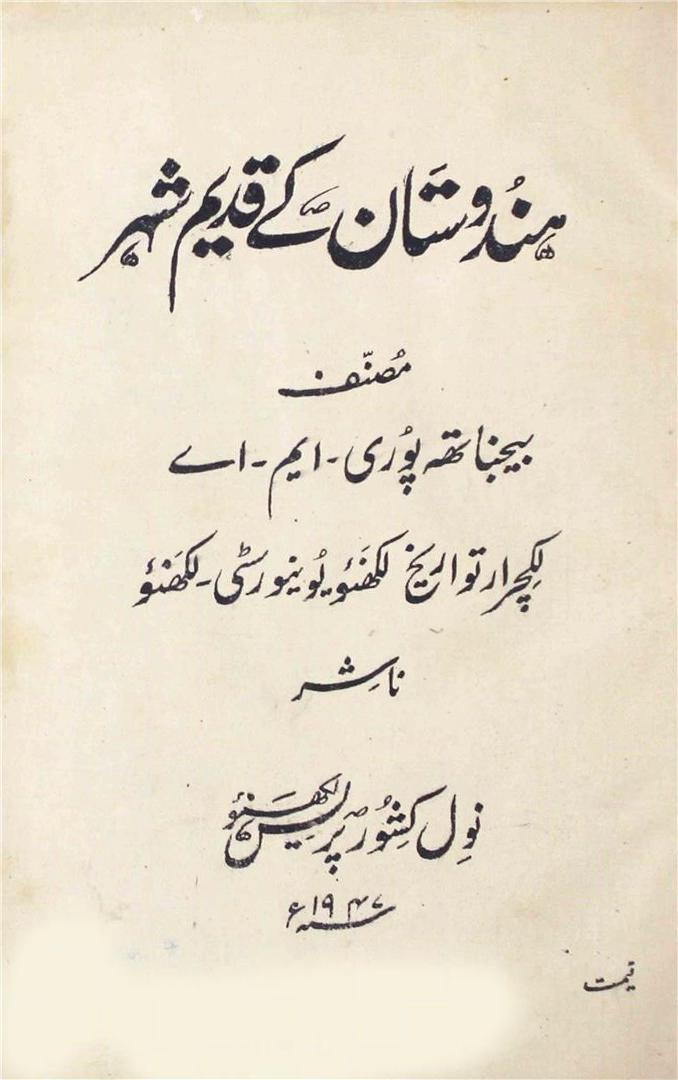 ہندوستان کے قدیم شہر
مُصنّف
بیجناتھ پُوری - ایم - اے
لکچرار تواریخ لکھنَؤ یُونیورسٹی - لکھنَؤ
ناشِر
نوِل کِشُور پریس لکھنَؤ
سنہ ۱۹۴۷ء
قیمت